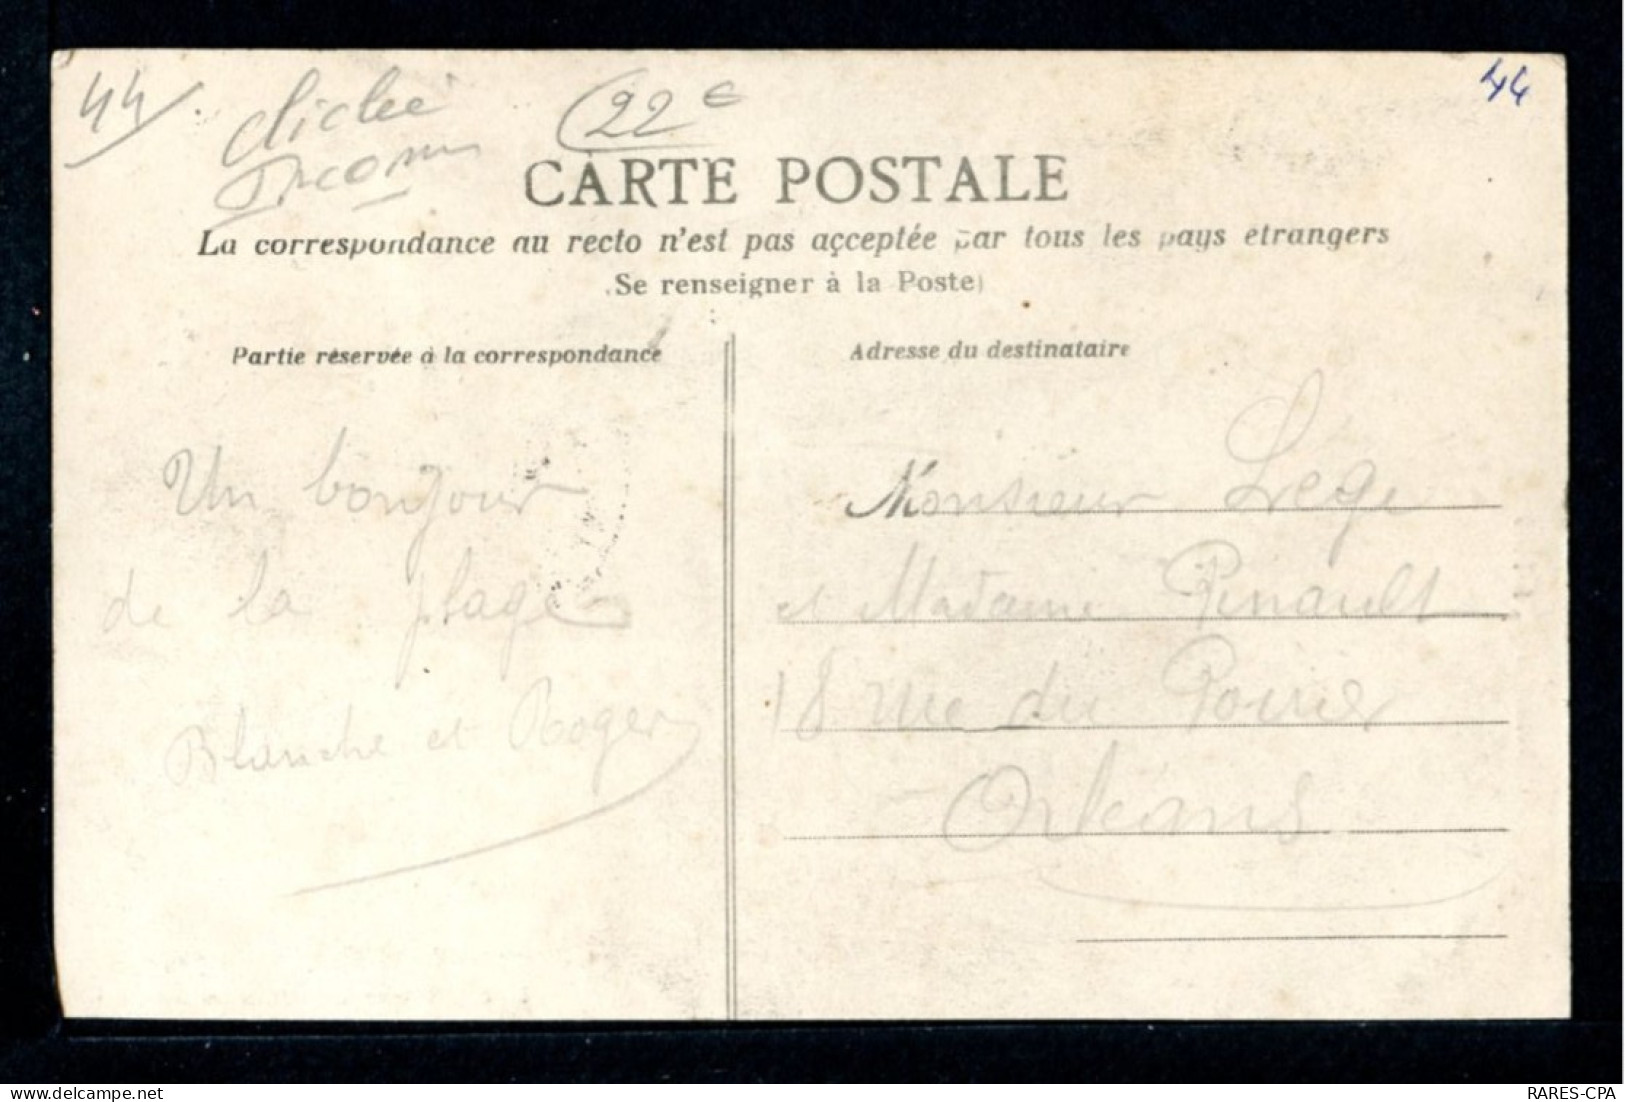 44
cliché
Inconnu
22€
44
CARTE POSTALE
La correspondance au recto n'est pas acceptée par tous les pays etrangers
(Se renseigner à la Poste)
Partie réservée à la correspondance
Un bonjour
de la plage
Blanche et Roger
Adresse du destinataire
Monsieur Lege
et Madame Pinault
18 rue du Poirier
Orléans
delcampe.net
RARES-CPA